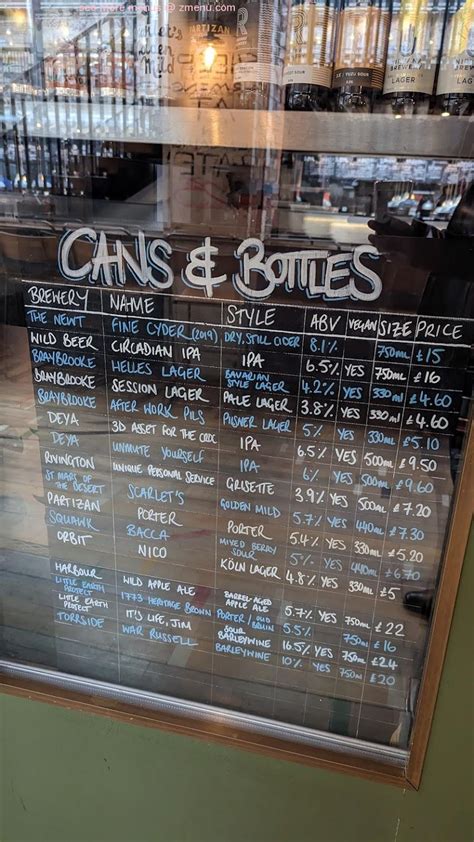 see more menus @ zmenu.com
PARTIZAN
YUZU SOUR
LAGER
LAGER
CANS & BOTTLES
BREWERY NAME STYLE ABV VEGAN SIZE PRICE
THE NEWT FINE CYDER (2019) DRY, STILL CIDER 8.1% 750ML £15
WILD BEER CIRCADIAN IPA IPA 6.5% YES 750ML £16
BRAYBROOKE HELLES LAGER BAVARIAN STYLE LAGER 4.2% YES 330ML £4.60
BRAYBROOKE SESSION LAGER PALE LAGER 3.8% YES 330ML £4.60
BRAYBROOKE AFTER WORK PILS PILSNER LAGER 5% YES 330ML £5.10
DEYA 3D ASSET FOR THE CROC IPA 6.5% YES 500ML £9.50
DEYA UNMUTE YOURSELF IPA 6% YES 500ML £9.60
RIVINGTON UNIQUE PERSONAL SERVICE GRISETTE 3.9% YES 500ML £7.20
ST MARS OF THE DESERT SCARLET'S GOLDEN MILD 5.7% YES 440ML £7.30
PARTIZAN PORTER PORTER 5.4% YES 330ML £5.20
SQUAWK BACCA MIXED BERRY SOUR 5% YES 440ML £6.70
ORBIT NICO KÖLN LAGER 4.8% YES 330ML £5
HARBOUR WILD APPLE ALE BARREL-AGED APPLE ALE 5.7% YES 750ML £22
LITTLE EARTH PROJECT 1773 HERITAGE BROWN PORTER / OUD BRUIN 5.5% 750ML £16
LITTLE EARTH PROJECT IT'S LIFE, JIM SOUR BARLEYWINE 16.5% YES 750ML £24
TORRSIDE WAR RUSSELL BARLEYWINE 10% YES 750ML £20